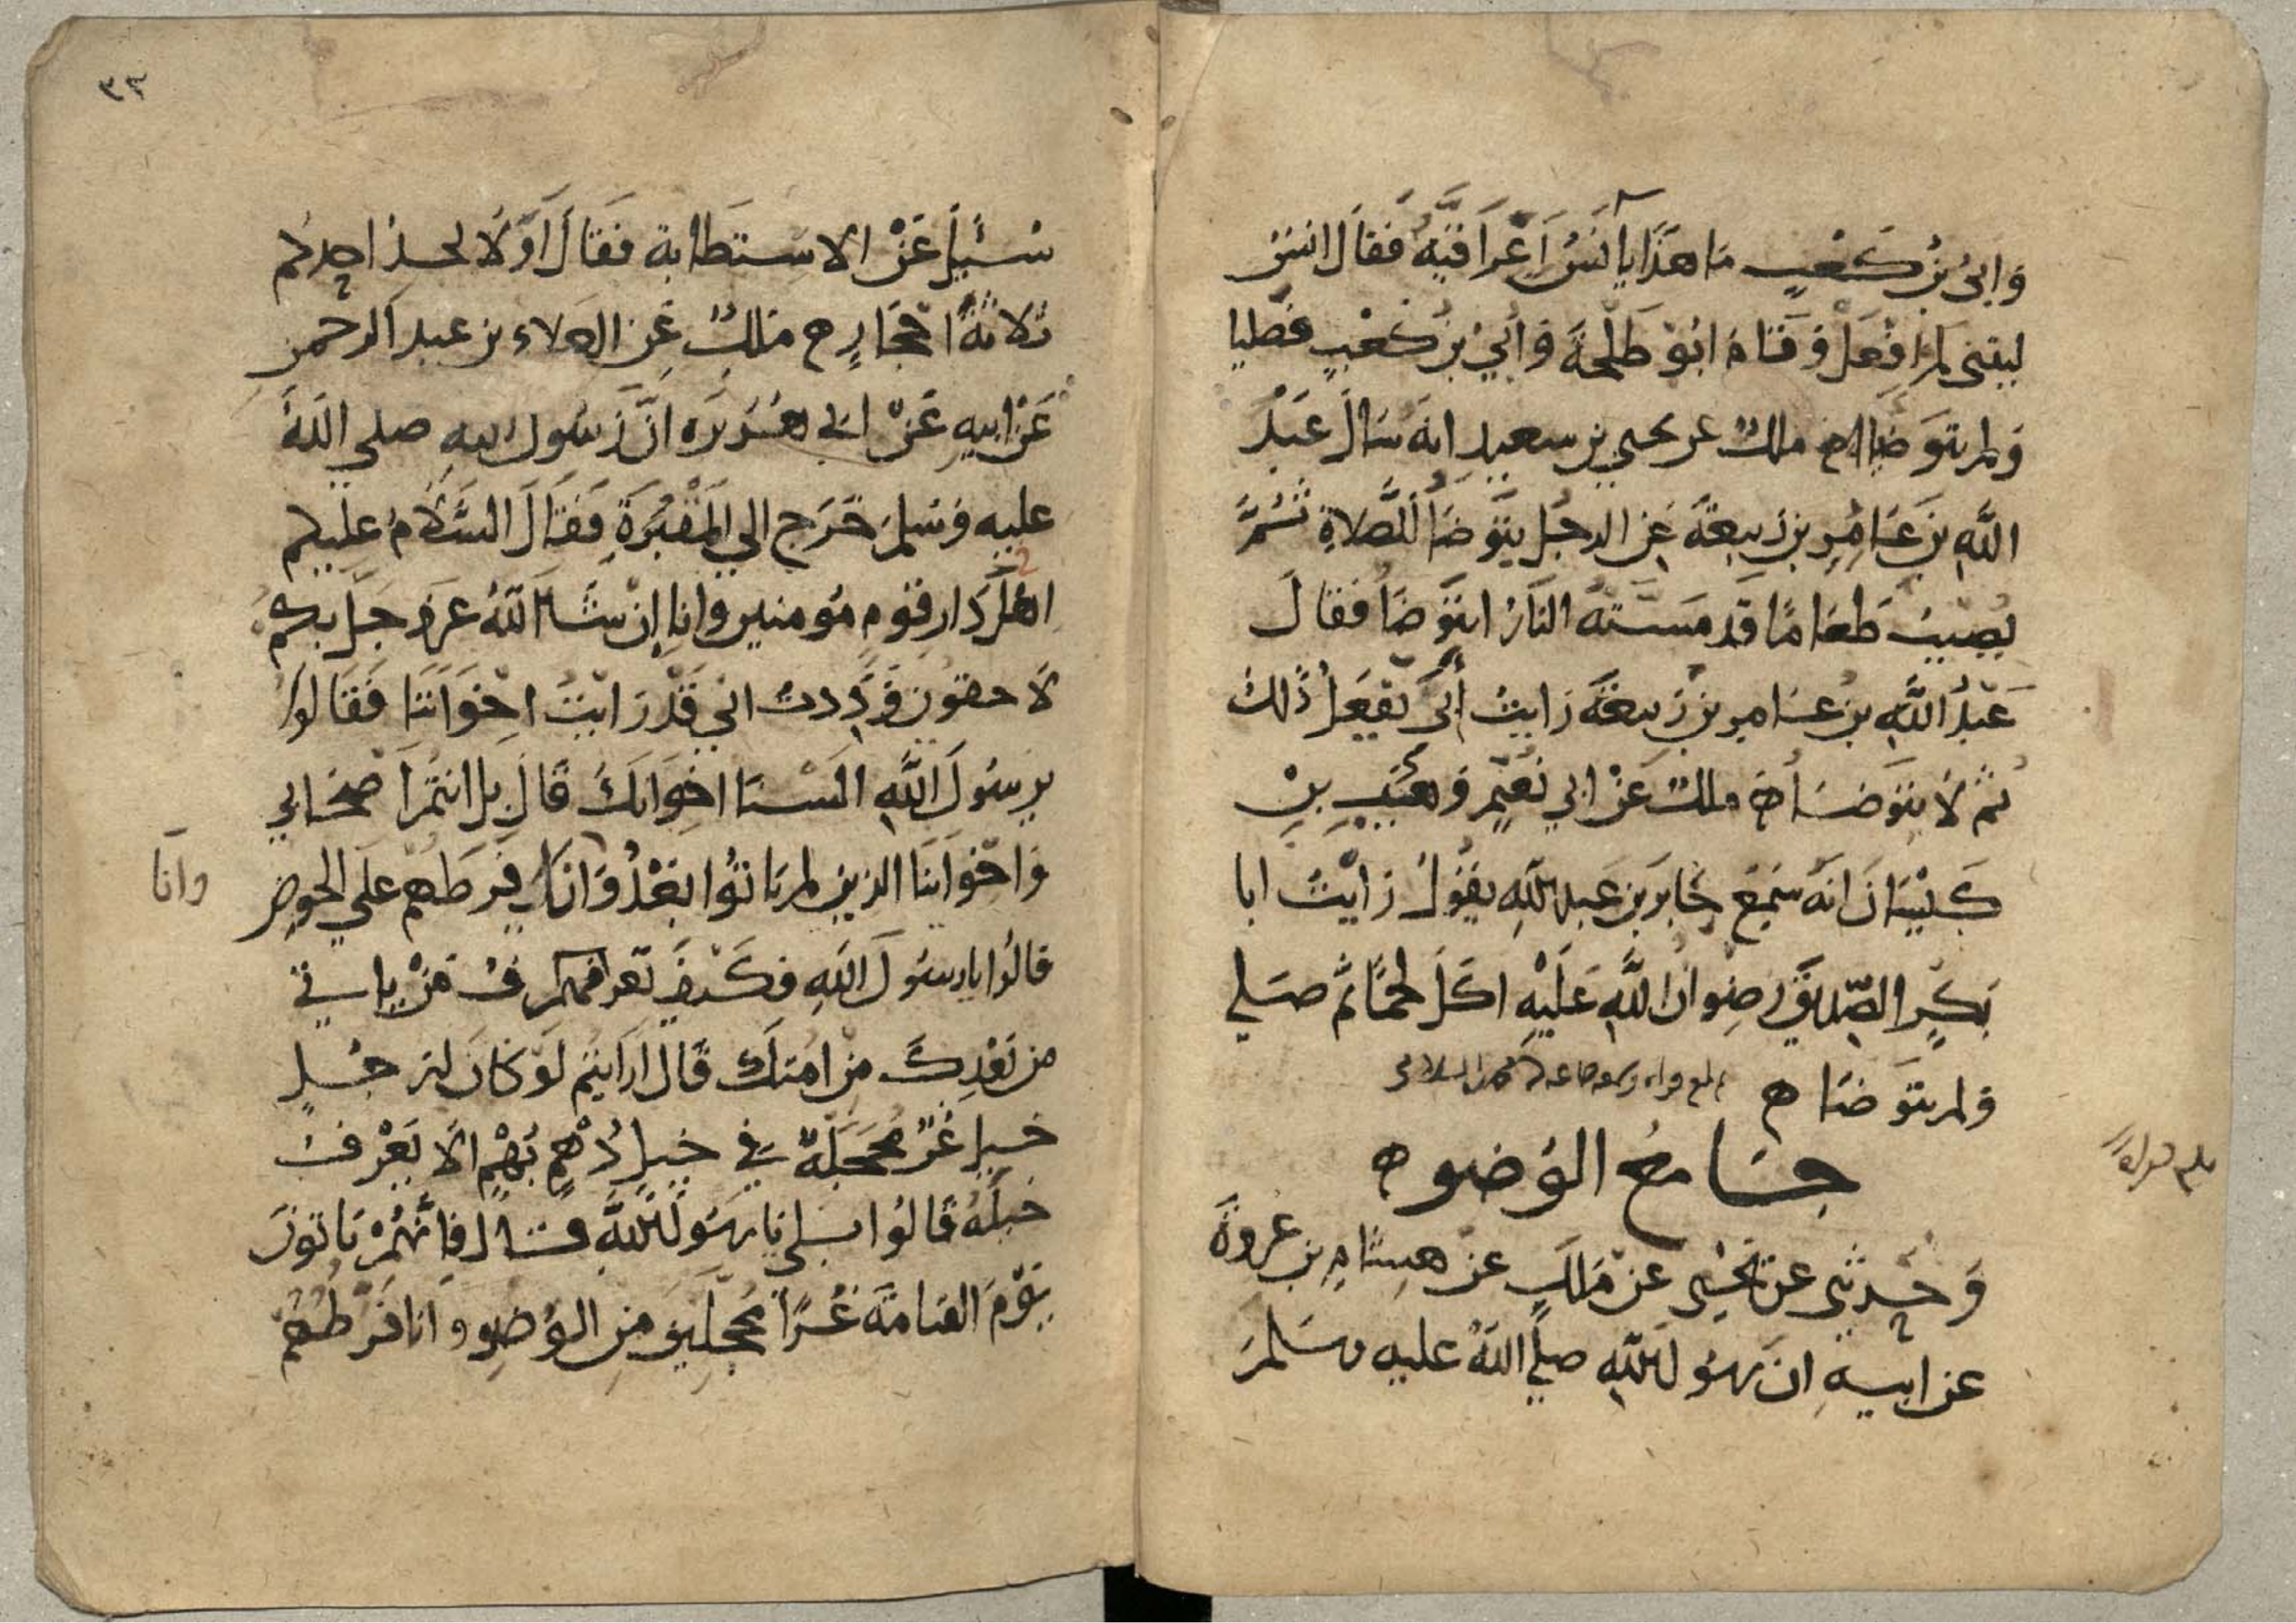 وَابىُ بنُ كَعْبٍ مَا هَذَا يا آنَسُ اَعِرَاقيَّةٌ فَقالَ انسٌ
ليتنى لم افْعَلْ وَقَامَ ابُو طَلْحَةَ وَاُبيُ بنُ كَعْبٍ فصَليا
وَلم يتوَضيا ملكٌ عن يحيي بن سعيدٍ انه سَالَ عَبْدَ
اللَّهِ بنَ عَامِرِ بن رَبيعَةَ عَنِ الرجُل يتَوَضَأُ للصَّلاةِ ثُمَّ
يُصيبُ طَعَامًا قَد مَسَتهُ النَارُ ايتَوَضَأُ فقالَ
عَبْدُ اللَّهِ بن عَامرِ بن رَبيعَةَ رَايتُ أبي يَفْعَلُ ذَلكَ
ثُم لَا يتَوَضَأ ملكٌ عَنْ ابي نُعَيْمٍ وَهْبِ بنِ
كَيْسَانَ انَهُ سَمِعَ جَابرَ بن عَبد اللهِ يقُولُ رَايْتُ ابا
بَكْرٍ الصّديقَ رِضوانُ اللَّهِ عَلَيْهِ اكَلَ لحْمًا ثم صَلي
وَلم يتوَضَا
جَامعُ الوُضوء
وَحَدثنى عن يَحْيى عَن مَلكٍ عَنْ هِشَامِ بن عُروَةَ
عن ابيهِ انَ رسُولَ اللهِ صلي اللهُ عليه وسَلمَ
٣٣
سُئيلَ عَنْ الاسْتطَابة فقَالَ اَوَلَا يجد احدكم
ثلاثةَ احْجَارٍ ملكٌ عَن العلاء بن عبد الرحمن
عَن ابيهِ عَنْ ابي هُرَيْرَه انَّ رَسُول اللهِ صلي اللهُ
عليهِ وَسَلمَ خَرَج الي المَقْبُرَةِ فَقَالَ السَّلامُ عليكم
اهْلَ دَار قَومٍ مُومنين وانا اِنْ شَا اللهُ عَز وَجَلَ بكم
لَاحقون وَدِدتُ اني قَدْ رَايتُ اخْوَانَنَا فَقَالوا
يرسُولَ اللَّهِ السْنَا اخوَانكَ قَالَ بل انتُم اَصْحَابي
وَاخْوَاننَا الذين لم يَاتُوا بَعْدُ وَانَا فرَطهم علَي الحوضِ
وانَا
قالُوا يا رسُولَ اللهِ فكَيْفَ تعرف مَنْ ياتي
من بَعْدِكَ مِن امتكَ قَال ارَايتم لَوْ كانَ لرَجُلٍ
خيل غُرٌّ مُحَجَلَةٌ في خَيلٍ دُهْمٍ بُهْمٍ الَا يَعْرفُ
خيلَهُ قَالُوا بَلي يَا رسُولَ اللَّهِ قَالَ فانَّهُمْ يَاتونَ
يَوْمَ القيامَةِ غُرًا مُحَجلينَ منِ الوُضوء وانَا فَرَطُهُم